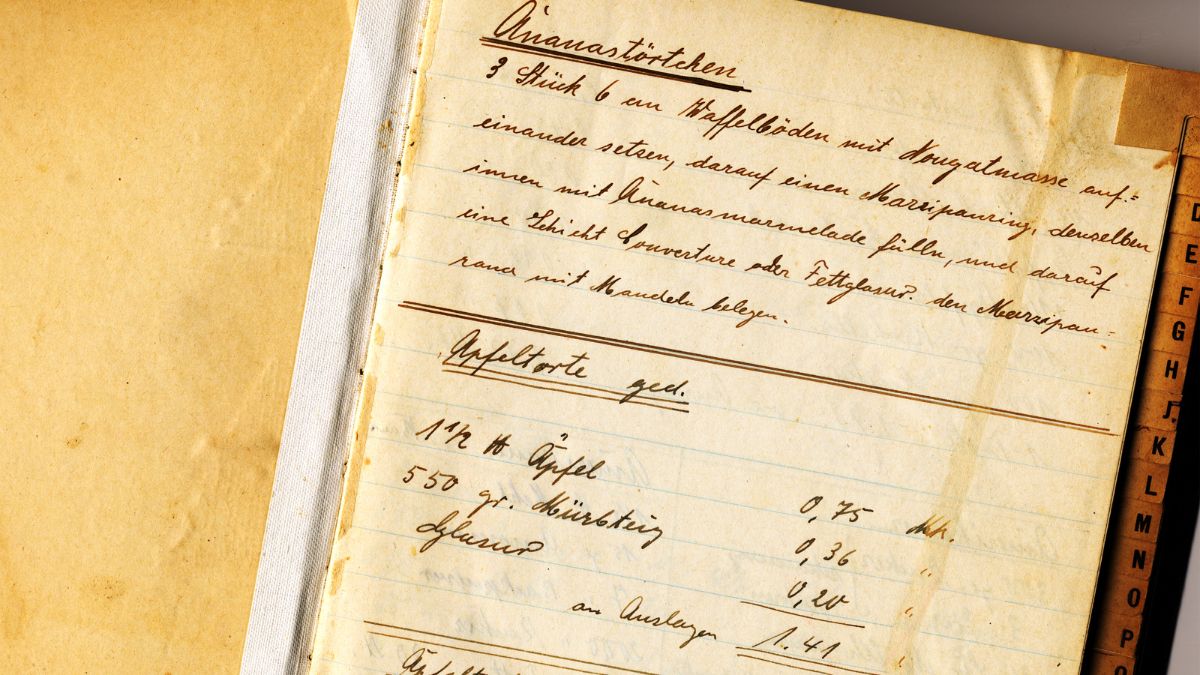 Ananastörtchen
3 Stück 6 cm Waffelböden mit Nougatmasse auf=
einander setzen, darauf einen Marzipanring, denselben
innen mit Ananasmarmelade fülln, und darauf
eine Schicht Couverture oder Fettglasur. den Marzipan-
rand mit Mandeln belegen.
Äpfeltorte ged.
1 1/2 ℔ Äpfel 0,75 Mk.
550 gr. Mürbteig 0,36 "
Glasur 0,20 "
an Auslagen 1.41
D
E
F
G
H
J.
K
L
M
N
O
P